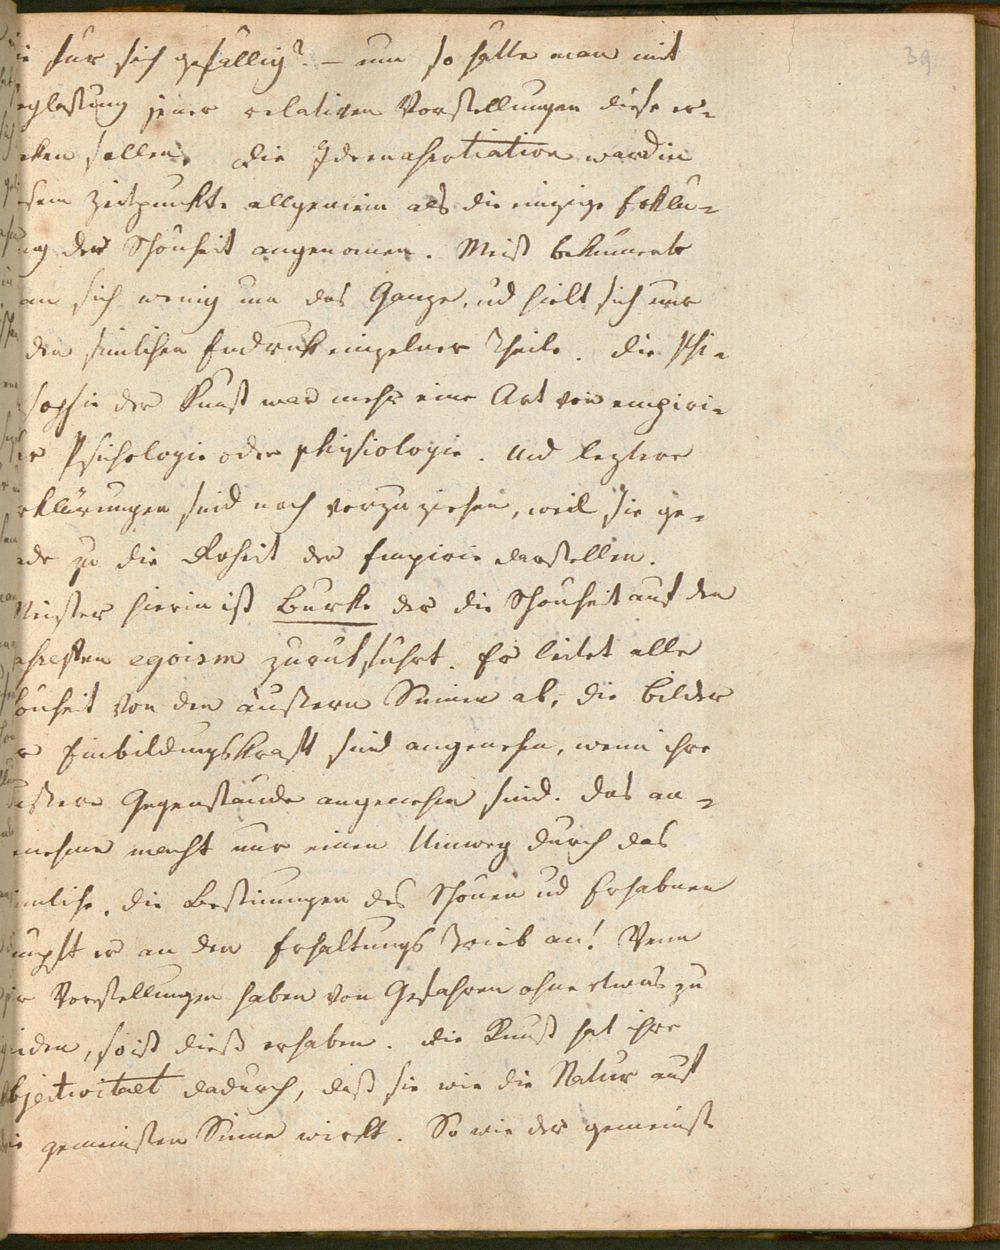 39
ie für sich gefällig? – nun so hätte man mit
eglassung jener relativen Vorstellungen diese er-
eken sollen. Die Ideenaßotiation ward in
sem Zeitpunkte allgemein als die einzige Erklä-
ng der Schönheit angenomen. Meist bekümerte
an sich wenig um das Ganze, ud hielt sich nur
den sinlichen Eindruk einzelner Theile. Die Phi-
sophie der Kunst war mehr eine Art von empiri-
er Psichologie oder physiologie. Und leztere
rklärungen sind noch vorzuziehen, weil sie ge-
ade zu die Roheit der Empirie darstellen.
Meister hierin ist Burke der die Schönheit auf den
egoism zurükführt. Er leitet alle
önheit von den äußern Sinnen ab, die Bilder
r Einbildungskraft sind angenehm, wenn ihre
ußere Gegenstände angenehm sind. Das an-
enehme macht nur einen Umweg durch das
innliche. Die Bestimungen des Schönen ud Erhabnen
nüpft er an den Erhaltungs Trieb an! Wenn
ir Vorstellungen haben von Gefahren ohne etwas zu
eiden, so ist dieß erhaben. Die Kunst hat ihre
bjectivitaet dadurch, daß sie wie die Natur auf
ie gemeinsten Sinne wirkt. So wie der gemeinste